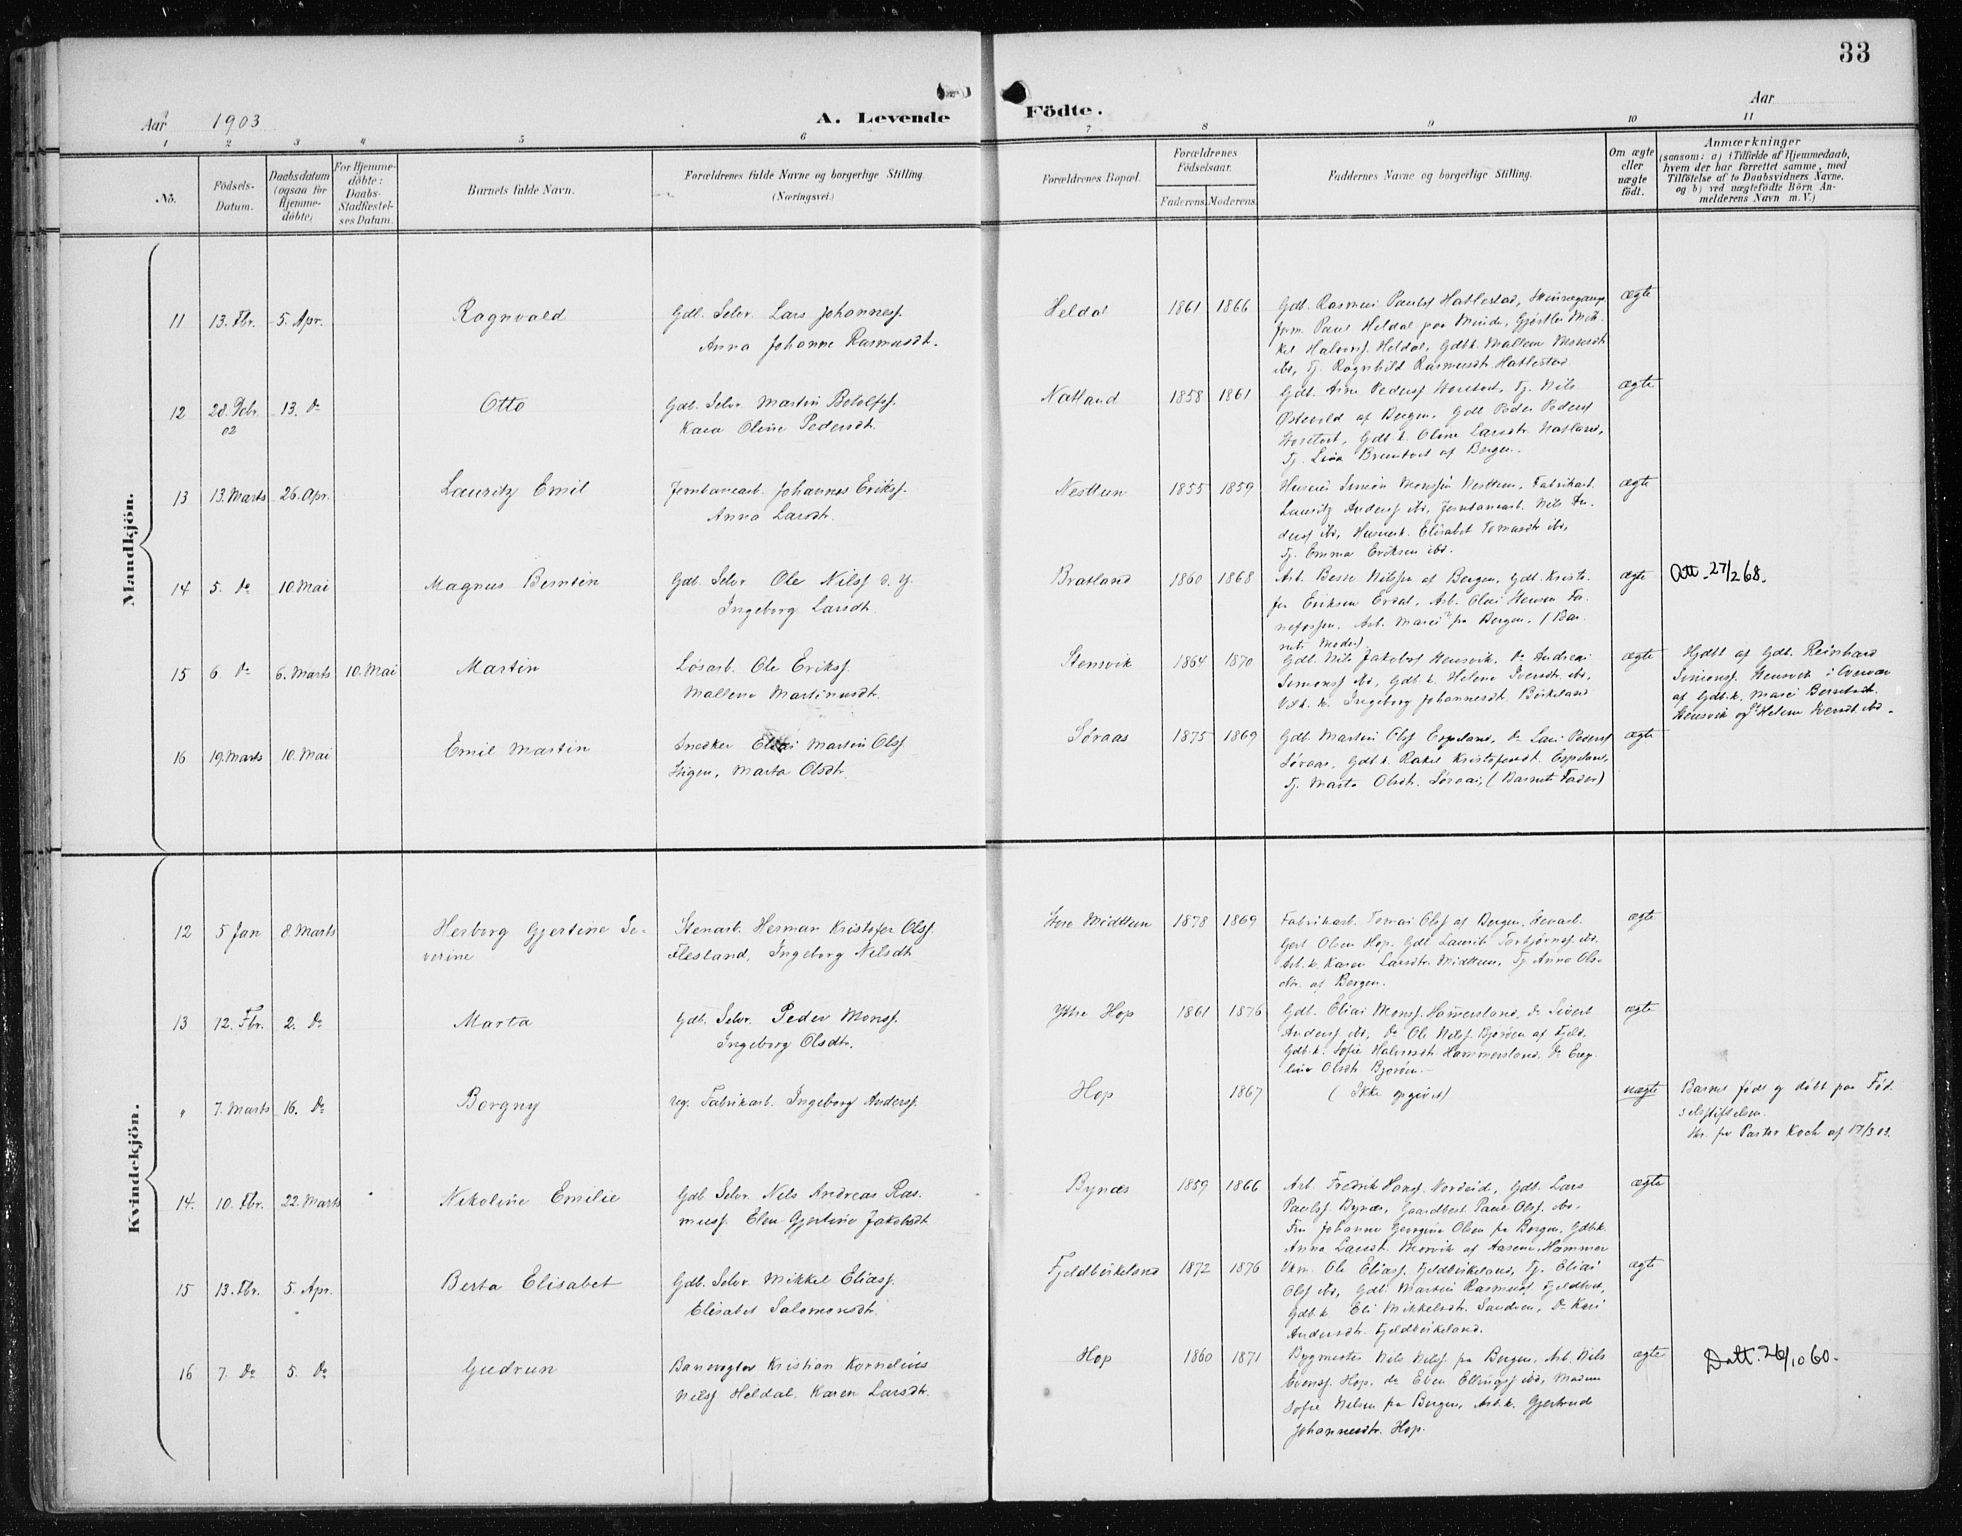 33
Aar 1903
A. Levende Födte.
Aar
1 2 3 4 5 6 7 8 9 10 11
No.
Födsels-Datum.
Daabsdatum (ogsaa for Hjemme-döbte)
For Hjemme-döbte: Daabs-Stadfæstel-ses Datum.
Barnets fulde Navn.
Forældrenes fulde Navne og borgerlige Stilling.
(Næringsvei.)
Forældrenes Bopæl.
Forældrenes Födselsaar.
Faderens. Moderens.
Faddernes Navne og borgerlige Stilling.
Om ægte eller uægte födt.
Anmærkninger
(saasom: a) i Tilfælde af Hjemmedaab,
hvem der har forrettet samme, med
Tilföielse af to Daabsvidners Navne,
og b) ved uægtefödte Börn An-
melderens Navn m. V.)
Mandkjön.
11 13. Fbr. 5. Apr. Ragnvald
Gdb. Selv. Lars Johannesf.
Anna Johanne Rasmusdt.
Heldal 1861 1866
Gdb. Rasmus Paulsf Hatlestad,
Paul Heldal paa Minde, Mik-
kel Halvorsf. Heldal, Gdbk. Mallene Monsdt
ibd, Tj. Ragnhild Rasmusdt. Hatlestad
ægte
12 20. Febr. 02 13. do Otto
Gdb. Selv. Martin Botolfsf.
Kaia Oline Pedersdt.
Natland 1858 1861
Gdb. Arne Pedersf Tj. Nils
af Bergen, Gdb Peder Pedersf
Gdb.k. Oline Larsdtr. Natland,
Tj. Lina af Bergen.
ægte
13 13. Marts 26. Apr. Lauritz Emil
Jernbanearb. Johannes Eriksf.
Anna Larsdt.
Nesttun 1855 1859
Simon Monssen Nesttun, Fabrikarb.
Lauritz Andersf ibd, Jernbanearb. Nils An-
dersf ibd, Elisabet Tomasdt ibd,
Tj. Emma Eriksen ibd.
ægte
14 5. do 10. Mai Magnus Berntin
Gdb. Selv Ole Nilsf d. y.
Ingeborg Larsdt.
Bratland 1860 1868
Arb. Nilssen af Bergen, Gdb. Kristo-
fer Eriksen Erdal, Arb. Olai Hansen Fa-
nefossen, Arb. fra Bergen, (Bar-
nets Moder)
ægte
Att. 27/2 68.
15 6. do 6. Marts 10. Mai Martin
Løsarb. Ole Eriksf.
Mallene Martinusdt.
Stensvik 1864 1870
Gdb. Nils Jakobsf Stensvik, do Andreas
Simonsf ibd, Gdb.k. Helene Iversdt. ibd,
Ingeborg Johannesdt. Birkeland
ægte
Hjdbt af Gdb. Reinhard
Simonsf. Stensvik i Overvær
af Gdb.k. Mari
Stensvik og Helene Iversdt. ibd.
16 19. Marts 10. Mai Emil Martin
Snedker Martin Olsf
Marta Olsdtr.
Søraas 1875 1869
Gdb. Martin Olsf Espeland, do Lars Pedersf
Søraas, Gdb.k. Rakel Kristofersdt. Espeland,
Tj. Marta Olsdt. Søraas, (Barnets Fader)
ægte
Kvindekjön.
12 5 Jan 8. Marts Herborg Gjertine Se-
verine
Stenarb. Herman Kristofer Olsf.
Flesland, Ingeborg Nilsdt
Midttun 1878 1869
Fabrikarb. Tomas Olsf af Bergen, Stenarb.
Gert Olsen Hop, Gdb Laurits Torbjørnsf. ibd.
Arb.k. Karen Larsdtr. Midttun, Tj. Anna Ols-
dtr. af Bergen.
ægte
13 12. Fbr. 2. do Marta
Gdb. Selv. Peder Monsf.
Ingeborg Olsdtr.
Ytre Hop 1861 1876
Gdb. Elias Monsf. Hamersland, do Sivert
Andersf ibd, do Ole Nilsf. Bjørøen af Fjeld,
Gdb.k. Sofie Halvorsdt Hammersland, do
Olsdt Bjørøen.
ægte
" 7. Marts 16. do Borgny
ug. Fabrikarb. Ingeborg Andersf.
Hop 1867
(Ikke opgivet)
uægte
Barnet født og døbt paa Fød-
selsstiftelsen.
Skr. fra Pastor Koch af 17/3 03.
14. 10. Fbr. 22. Marts Nikoline Emilie
Gdb Selv. Nils Andreas Ras-
musf. Elen Gjertine Jakobsdt
Bynæs 1859 1866
Arb. Fredrik Hansf. Nordeide, Gdb. Lars
Paulsf. Bynæs, Gaardbest. Paul Olsf. ibd.
Fru Johanne Georgine Olsen fra Bergen, Gdb.k.
Anna Larsdt. af Aasene, Hammer
ægte
15 13. Fbr. 5. Apr. Berta Elisabet
Gdb. Selv. Mikkel Eliasf.
Elisabet Salomonsdt.
Fjeldbirkeland 1872 1876
Ukm. Ole Eliasf. Fjeldbirkeland, Tj. Elias
Olsf ibd, Gdb. Martin Rasmusf
Gdb.k. Eli Mikkelsdtr. Sandven, do Kari
Andersdtr. Fjeldbirkeland.
ægte
16 7. do 5. do Gudrun
Banevogter Kristian Kornelius
Nilsf Heldal, Karen Larsdt.
Hop 1860 1871
Bygmester Nils Nilsf. fra Bergen, Arb. Nils
Evensf. Hop, do Even Ellingsf ibd, Madam
Sofie Nilsen fra Bergen, Arb.k. Gjertrud
Johannesdtr. Hop.
ægte
Datt. 26/10 60.